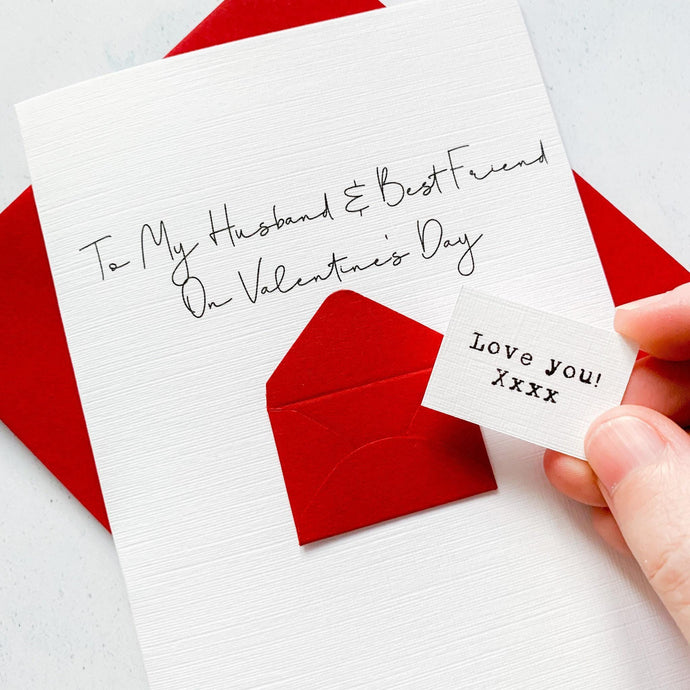 To My Husband & Best Friend
On Valentine's Day
Love you!
Xxxx